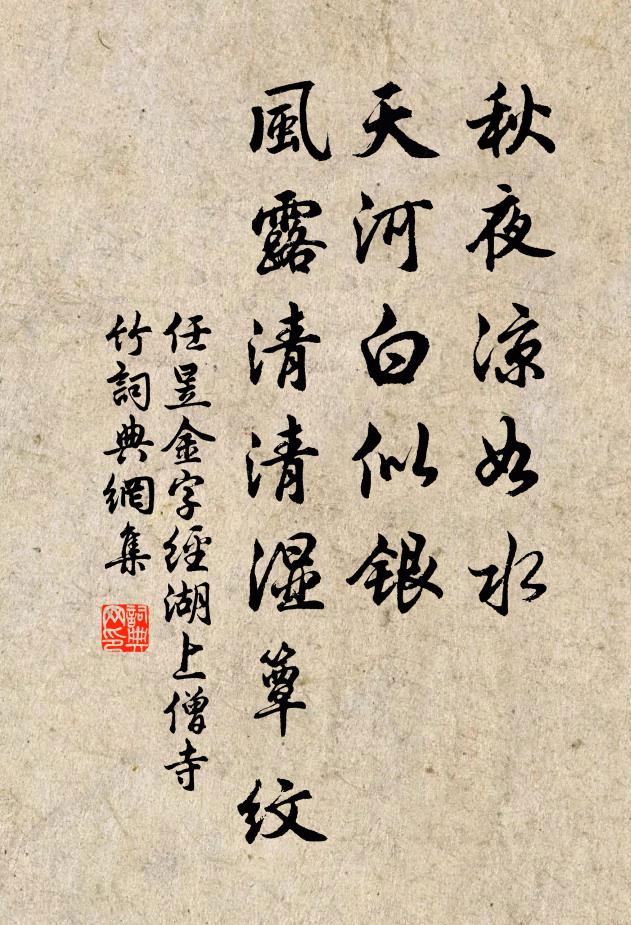 秋夜凉如水
天河白似銀
風露清清湿簟紋
任昱金字經湖上僧寺
竹詞典網集
詞典网印